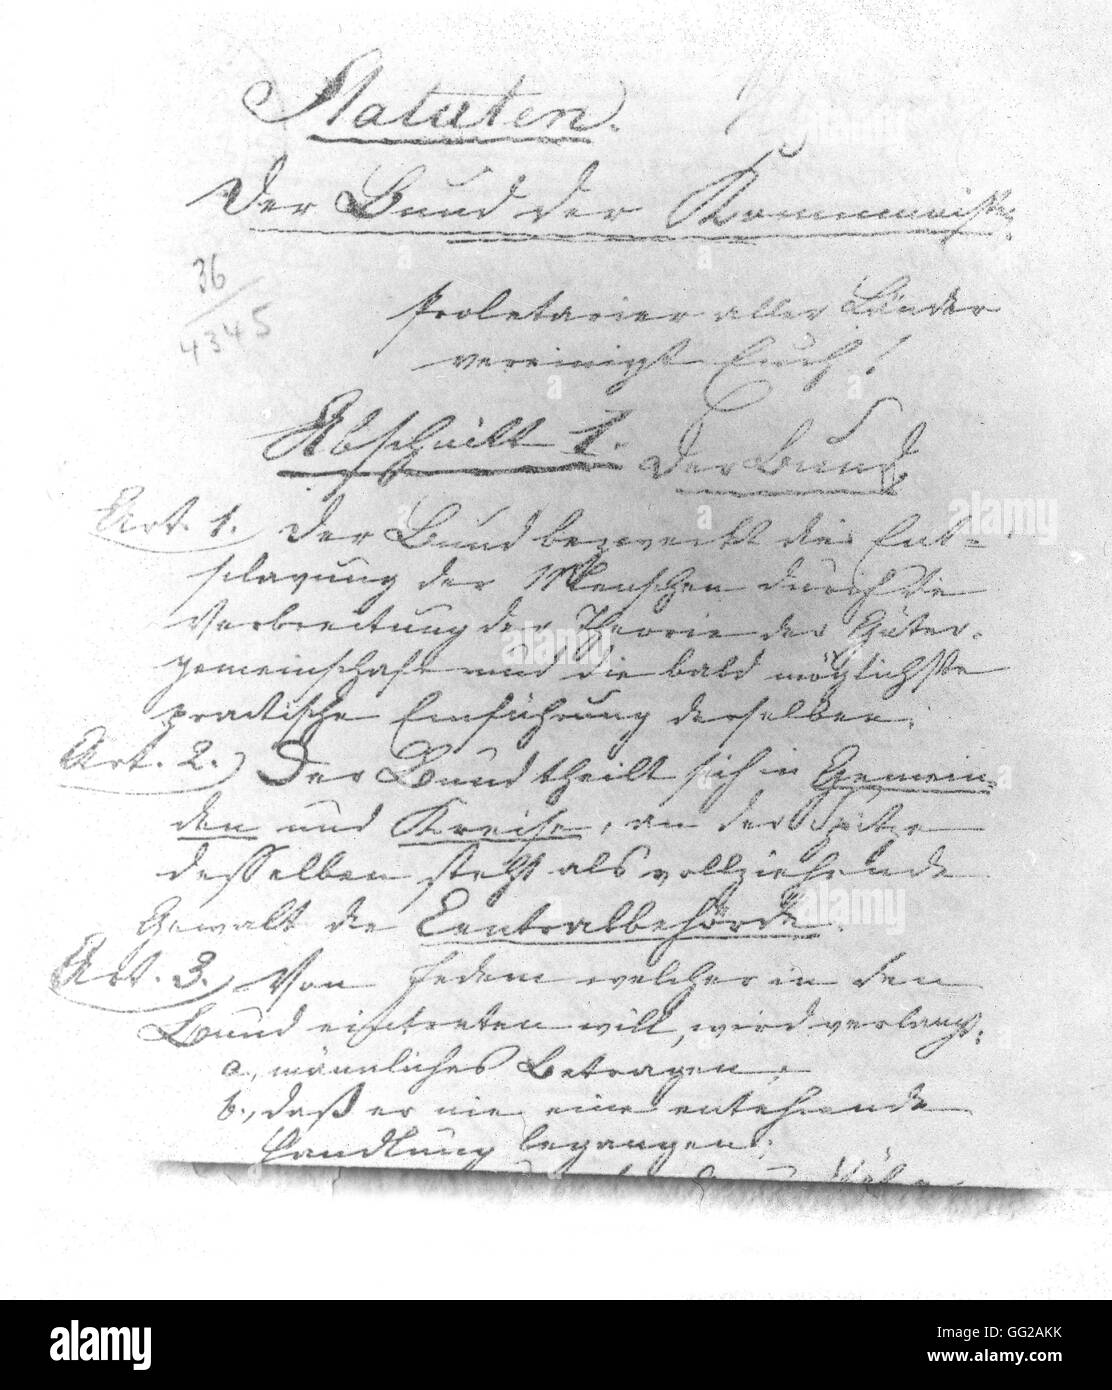 Statuten.
Der Bund der Kommunisten.
36
4345
Proletarier aller Länder
vereinigt Euch!
Abschnitt 1. Der Bund
Art. 1. Der Bund bezweckt die Ent=
sclavung der Menschen durch die
Verbreitung der Theorie der Güter-
gemeinschaft und die bald möglichste
practische Einführung derselben.
Art. 2. Der Bund theilt sich in Gemein=
den und Kreise, an der Spitze
desselben steht als vollziehende
Gewalt die Centralbehörde.
Art. 3. Von Jedem welcher in den
Bund eintreten will, wird verlangt:
a., männliches Betragen;
b., daß er nie eine entehrende
Handlung begangen;
alamy
alamy
alamy
alamy
a
a
a
alamy
Image ID: GG2AKK
www.alamy.com